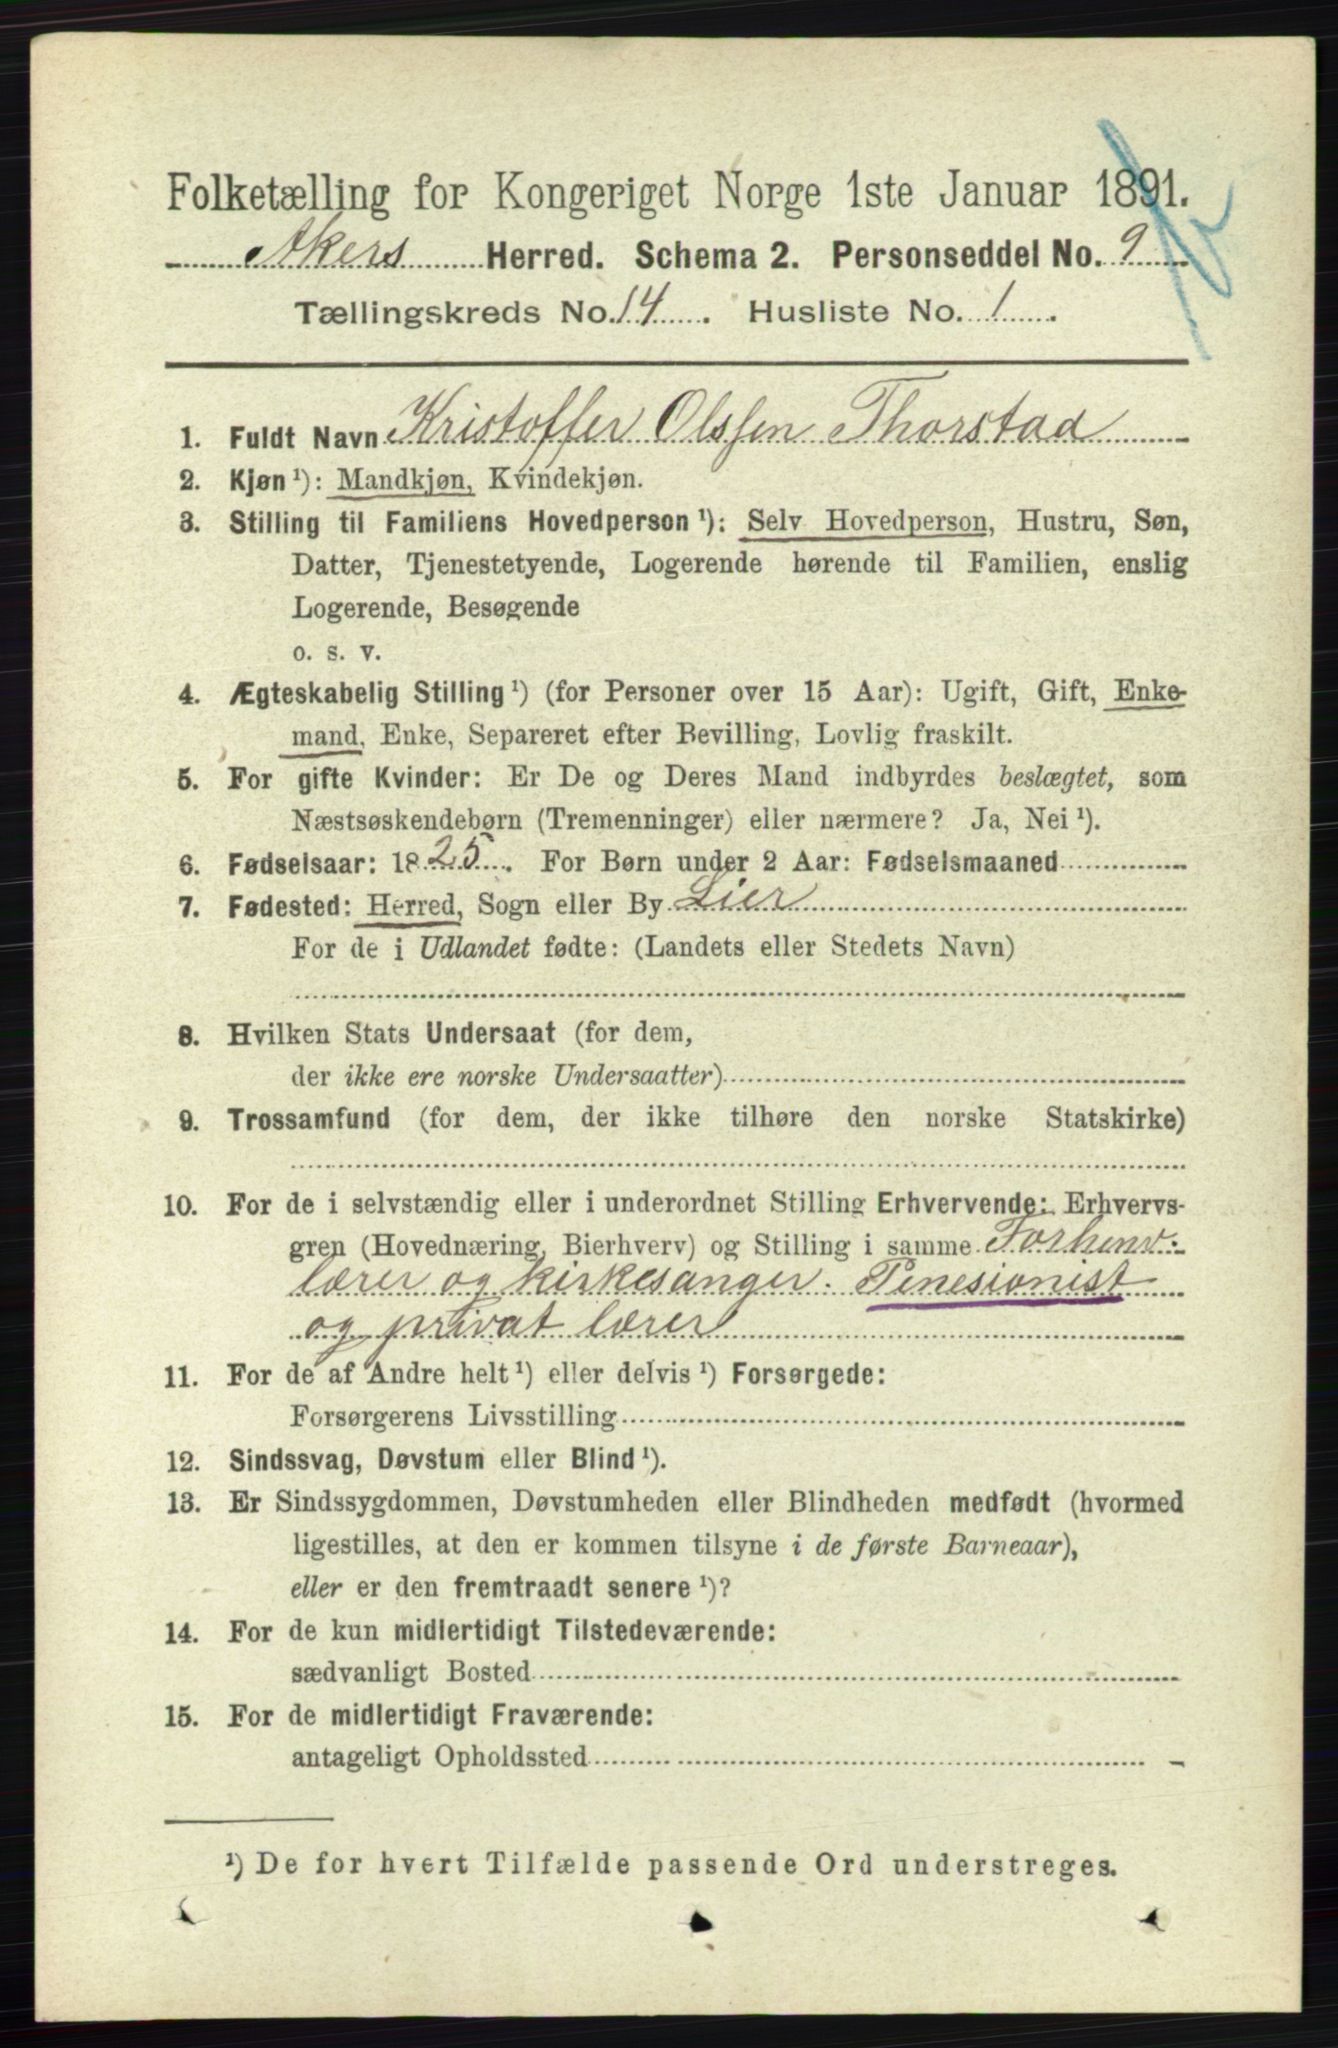 Folketælling for Kongeriget Norge 1ste Januar 1891.
Akers Herred. Schema 2. Personseddel No. 9
Tællingskreds No. 14. Husliste No. 1.
1. Fuldt Navn Kristoffer Olssen Thorstad
2. Kjøn ¹): Mandkjøn, Kvindekjøn.
3. Stilling til Familiens Hovedperson ¹): Selv Hovedperson, Hustru, Søn,
Datter, Tjenestetyende, Logerende hørende til Familien, enslig
Logerende, Besøgende
o. s. v.
4. Ægteskabelig Stilling ¹) (for Personer over 15 Aar): Ugift, Gift, Enke-
mand, Enke, Separeret efter Bevilling, Lovlig fraskilt.
5. For gifte Kvinder: Er De og Deres Mand indbyrdes beslægtet, som
Næstsøskendebørn (Tremenninger) eller nærmere? Ja, Nei ¹).
6. Fødselsaar: 1825. For Børn under 2 Aar: Fødselsmaaned
7. Fødested: Herred, Sogn eller By Lier
For de i Udlandet fødte: (Landets eller Stedets Navn)
8. Hvilken Stats Undersaat (for dem,
der ikke ere norske Undersaatter)
9. Trossamfund (for dem, der ikke tilhøre den norske Statskirke)
10. For de i selvstændig eller i underordnet Stilling Erhvervende: Erhvervs-
gren (Hovednæring, Bierhverv) og Stilling i samme Forhenv.
lærer og kirkesanger. Penesionist
og privat lærer
11. For de af Andre helt ¹) eller delvis ¹) Forsørgede:
Forsørgerens Livsstilling
12. Sindssvag, Døvstum eller Blind ¹).
13. Er Sindssygdommen, Døvstumheden eller Blindheden medfødt (hvormed
ligestilles, at den er kommen tilsyne i de første Barneaar),
eller er den fremtraadt senere ¹)?
14. For de kun midlertidigt Tilstedeværende:
sædvanligt Bosted
15. For de midlertidigt Fraværende:
antageligt Opholdssted
¹) De for hvert Tilfælde passende Ord understreges.